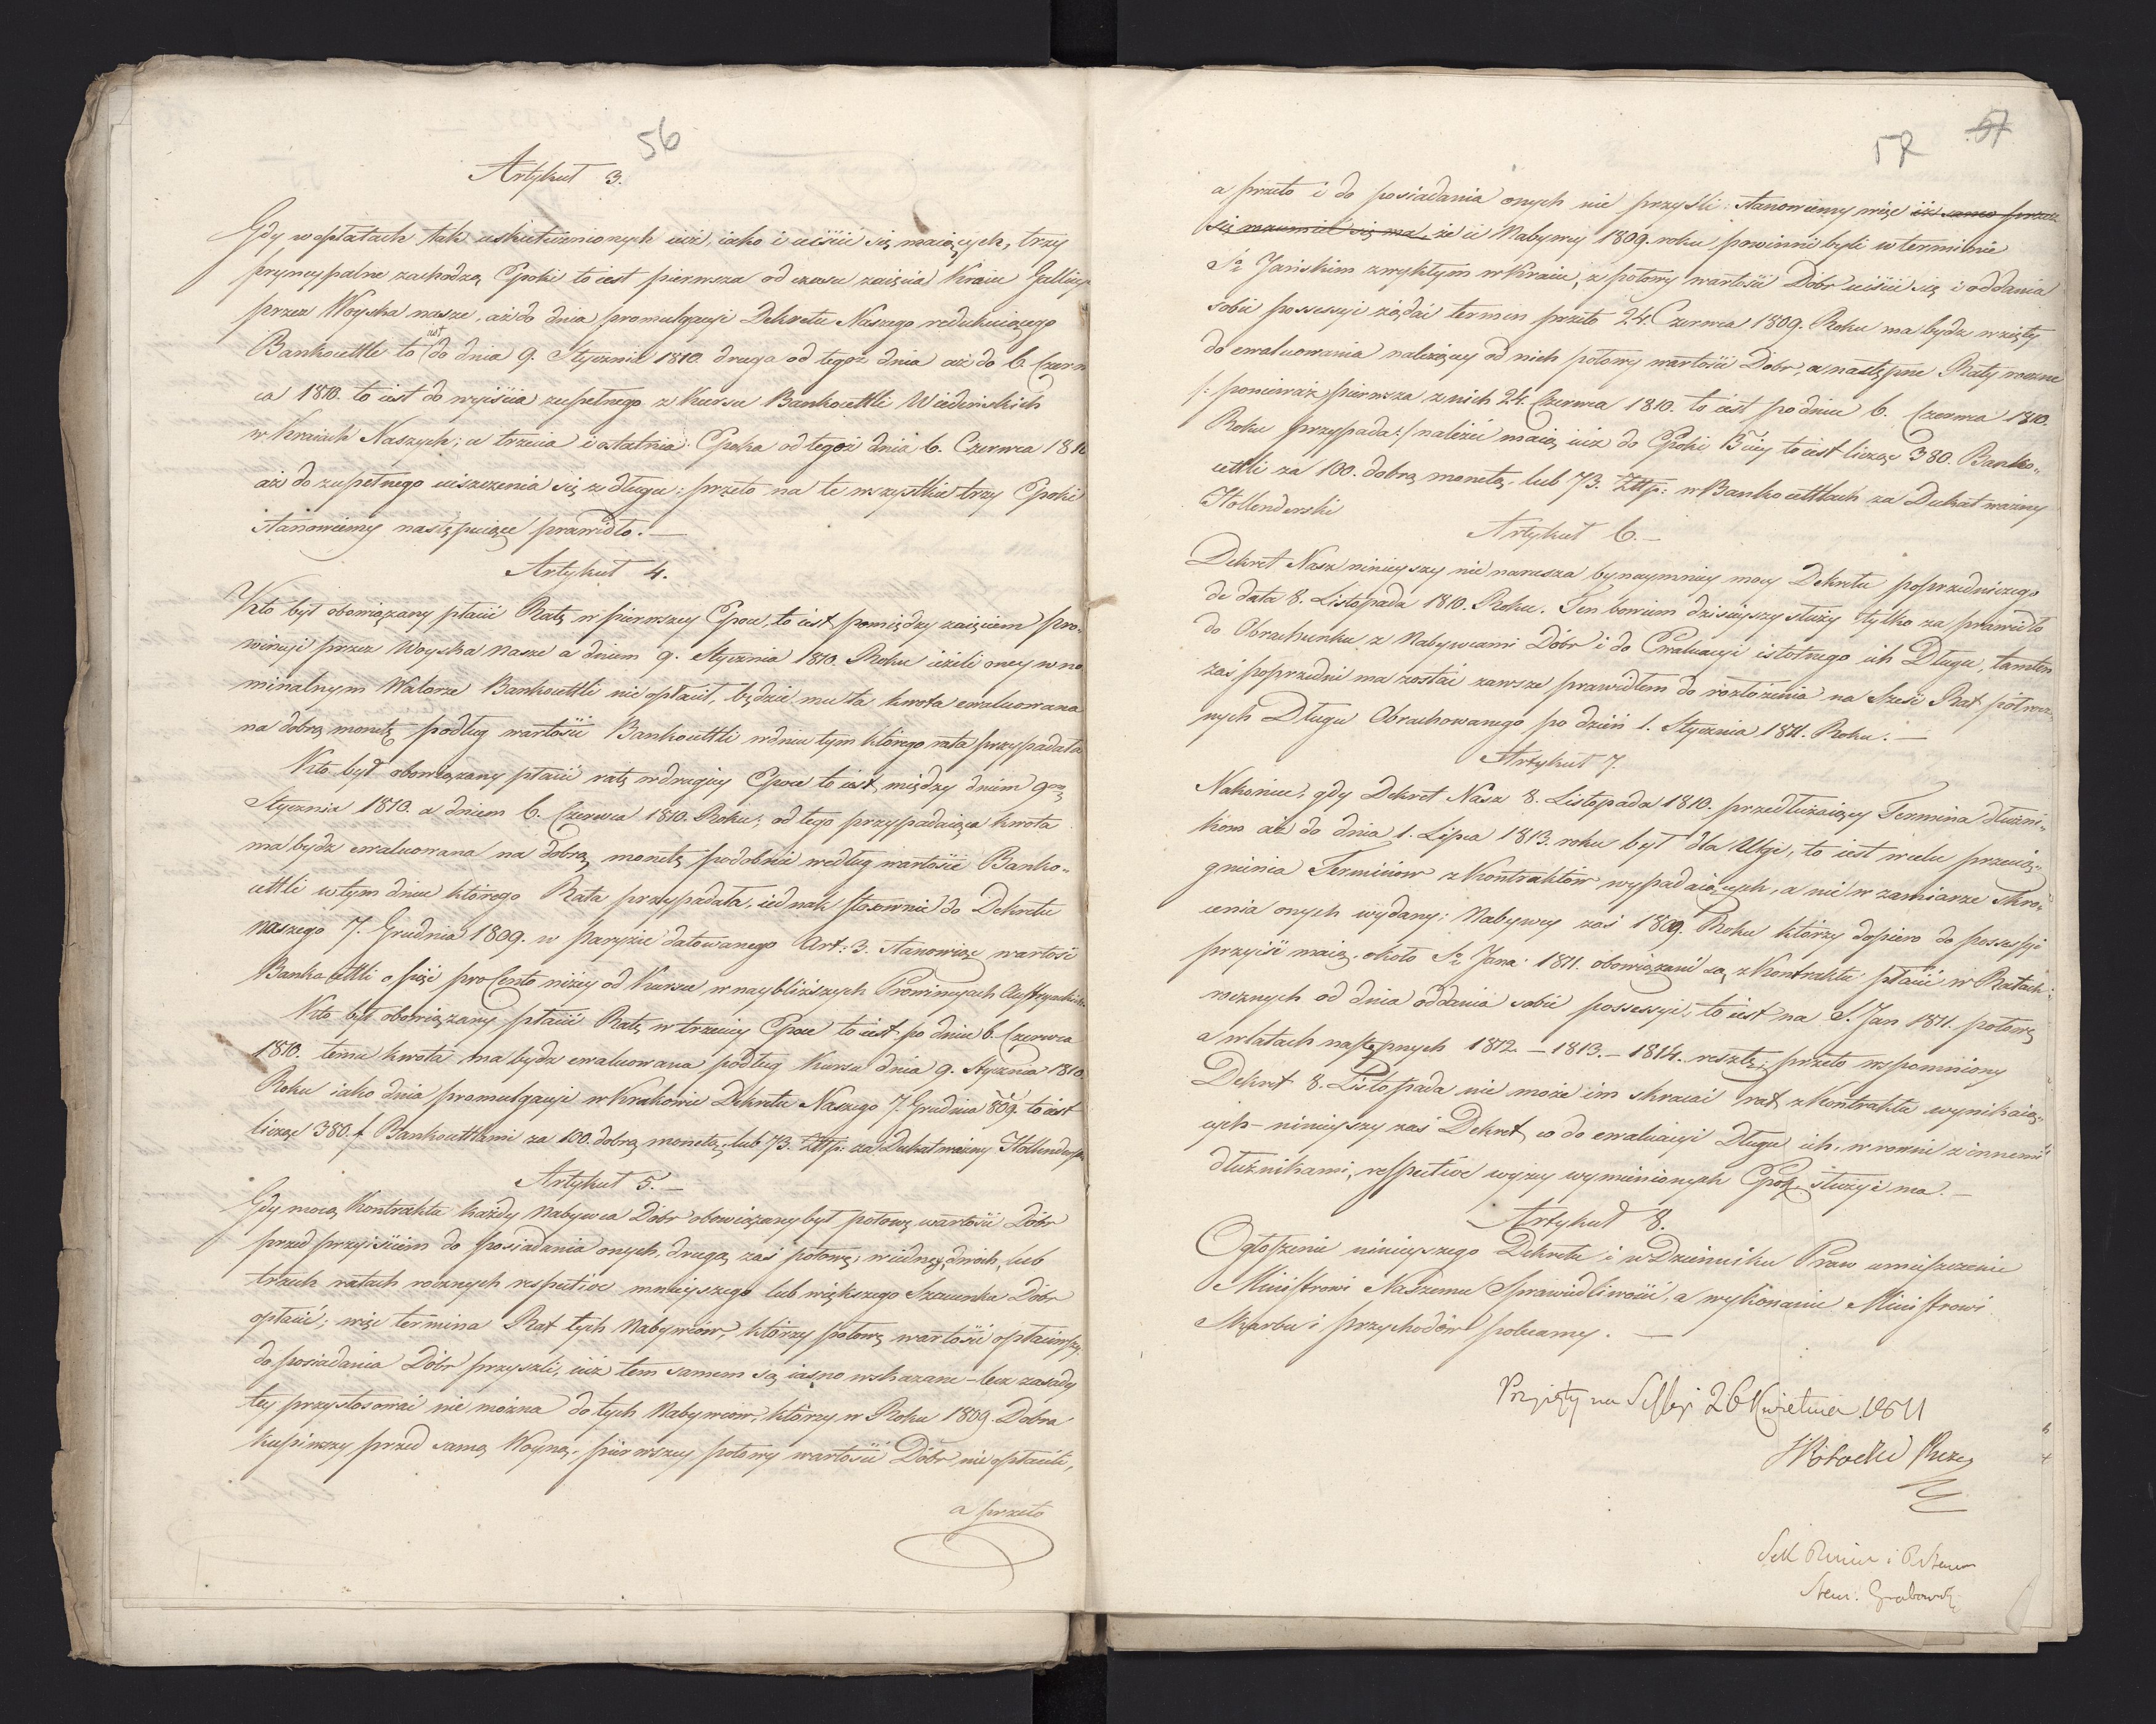 56
Artykuł 3.
Gdy w opłatach tak uskutecznionych iuż, iako i uiścić się maiących, trzy
pryncypalne zachodzą Epoki to iest pierwsza od czasu zaięcia Kraiu Gallicyi
przez Woyska nasze, aż do dnia promulgacyi Dekretu Naszego redukuiącego
Bankocettle to iest do dnia 9. Stycznia 1810. druga od tegoż dnia aż do 6. Czerw
ca 1810. to iest do wyiścia zupełnego z Kursu Bankocettli Wiedeńskich
w Kraiach Naszych; a trzecia i ostatnia Epoka od tegoż dnia 6. Czerwca 1810
aż do zupełnego uiszczenia się z długu: przeto na te wszystkie trzy Epoki
stanowiemy następuiące prawidło. —
Artykuł 4.
Kto był obowiązany płacić Ratę w pierwszey Epoce, to iest pomiędzy zaięciem pro-
wincyi przez Woyska Nasze a dniem 9. Stycznia 1810. Roku ieżeli oney w no
minalnym Walorze Bankocettli nie opłacił, będzie mu ta kwota ewaluowana
na dobrą monetę podług wartości Bankocettli w dniu tym którego rata przypadała
Kto był obowiązany płacić ratę w drugiey Epoce to iest między dniem 9ym
Stycznia 1810. a dniem 6. Czerwca 1810. Roku; od tego przypadaiąca kwota
ma bydź ewaluowana na dobrą monetę podobnie według wartości Banko-
cettli w tym dniu którego Rata przypadała, iednak stosownie do Dekretu
naszego 7. Grudnia 1809. w Paryżu datowanego Art: 3. stanowiąc wartość
Bankocettli o pięć pro Cento niżey od Kursu w naybliższych Prowincyach Austryackich
Kto był obowiązany płacić Ratę w trzeciey Epoce to iest po dniu 6. Czerwca
1810. temu kwota ma bydź ewaluowana podług Kursu dnia 9. Stycznia 1810
Roku iako dnia promulgacyi w Krakowie Dekretu Naszego 7. Grudnia 809. to iest
licząc 380. f Bankocettlami za 100. dobrą monetą, lub 73. Złłp: za Dukat ważny Hollenderski
Artykuł 5. —
Gdy mocą Kontraktu każdy Nabywca Dóbr obowiązany był połowę wartości Dóbr
przed przyiściem do posiadania onych, drugą zaś połowę w iedney, dwóch, lub
trzech ratach rocznych respective mnieyszego lub większego Szacunku Dóbr
opłacić; więc termina Rat tych Nabywców, którzy połowę wartości opłaciwszy
do posiadania Dóbr przyszli, iuż tem samem są iasno wskazane - lecz zasady
tey przystosować nie można do tych Nabywców, którzy w Roku 1809. Dobra
kupiwszy przed samą Woyną, pierwszey połowy wartości Dóbr nie opłacili,
a przeto
57
57
a przeto i do posiadania onych nie przyśli: stanowiemy więc iż samo przez
się rozumieć się ma, że ci Nabywcy 1809. roku powinni byli w terminie
S° Jańskim zwykłym w Kraiu, z połowy wartości Dóbr uiścić się i oddania
sobie possessyi żądać termin przeto 24. Czerwca 1809. Roku ma bydź wzięty
do ewaluowania należącey od nich połowy wartości Dóbr, a następne Raty roczne
/: ponieważ pierwsza z nich 24. Czerwca 1810. to iest po dniu 6. Czerwca 1810.
Roku przypada :/ należeć maią iuż do Epoki 3ciey to iest licząc 380. Banko-
cettli za 100. dobrą monetą, lub 73. Złłp: w Bankocettlach za Dukat ważny
Hollenderski
Artykuł 6. —
Dekret Nasz ninieyszy nie narusza bynaymniey mocy Dekretu poprzedniczego
de data 8. Listopada 1810. Roku. Ten bowiem dzisieyszy służy tylko za prawidło
do Obrachunku z Nabywcami Dóbr i do Ewaluacyi istotnego ich Długu, tamten
zaś poprzedni ma zostać zawsze prawidłem do rozłożenia na Sześć Rat półrocz-
nych Długu Obrachowanego po dzień 1. Stycznia 1811. Roku. —
Artykuł 7.
Nakoniec, gdy Dekret Nasz 8. Listopada 1810. przedłużaiący Termina dłużni-
kom aż do dnia 1. Lipca 1813. roku był dla Ulgi, to iest w celu przecią-
gnienia Terminów z Kontraktów wypadaiących, a nie w zamiarze skró-
cenia onych wydany; Nabywcy zaś 1809. Roku którzy dopiero do possessyi
przyiść maią około S° Jana 1811. obowiązani są z Kontraktu płacić w Ratach
rocznych od dnia oddania sobie possessyi, to iest na S. Jan 1811. połowę
a w latach następnych 1812. — 1813. — 1814. resztę; przeto wspomniony
Dekret 8. Listopada nie może im skracać rat z Kontraktu wynikaią-
cych - ninieyszy zaś Dekret co do ewaluacyi Długu ich, w rowni z innemi
dłużnikami, respective wyżey wymienionych Epok służyć ma. —
Artykuł 8.
Ogłoszenie ninieyszego Dekretu i w Dzienniku Praw umieszczenie
Ministrowi Naszemu Sprawiedliwości, a wykonanie Ministrowi
Skarbu i Przychodów polecamy. —
Przyięty na Sessyi 26 Kwietnia 1811
Potocki Prezes
Grabowski